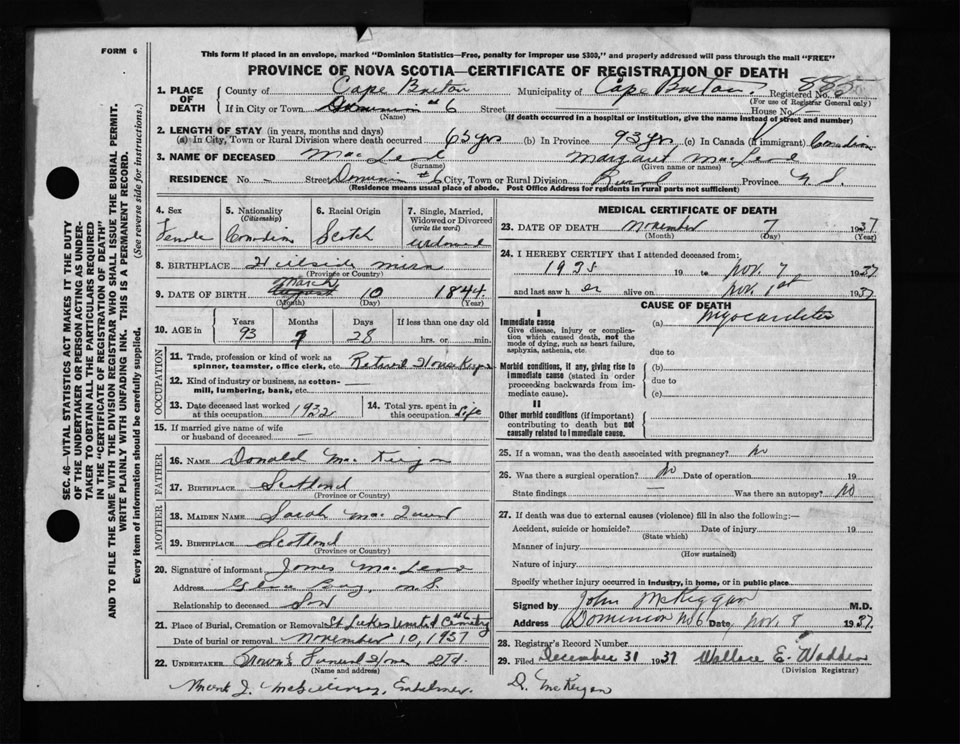 FORM 6
This form if placed in an envelope, marked "Dominion Statistics—Free, penalty for improper use $300," and properly addressed will pass through the mail "FREE"
PROVINCE OF NOVA SCOTIA—CERTIFICATE OF REGISTRATION OF DEATH
1. PLACE OF DEATH
County of Cape Breton Municipality of Cape Breton Registered No.
(For use of Registrar General only)
If in City or Town Dominion #6 Street House No.
(Name) (If death occurred in a hospital or institution, give the name instead of street and number)
2. LENGTH OF STAY (in years, months and days)
(a) In City, Town or Rural Division where death occurred 65 yrs (b) In Province 93 yrs (c) In Canada (if immigrant) Canadian
3. NAME OF DECEASED MacLeod Margaret MacLeod
(Surname) (Given name or names)
RESIDENCE No. - Street Dominion #6 City, Town or Rural Division Rural Province N.S.
(Residence means usual place of abode. Post Office Address for residents in rural parts not sufficient)
4. Sex
Female
5. Nationality (Citizenship)
Canadian
6. Racial Origin
Scotch
7. Single, Married, Widowed or Divorced (write the word)
Widowed
8. BIRTHPLACE Hillside Mira
(Province or Country)
9. DATE OF BIRTH March August 10 1844
(Month) (Day) (Year)
10. AGE in
Years Months Days If less than one day old
93 7 28 hrs. or min.
OCCUPATION
11. Trade, profession or kind of work as spinner, teamster, office clerk, etc. Retired
12. Kind of industry or business, as cotton-mill, lumbering, bank, etc.
13. Date deceased last worked at this occupation 1932
14. Total yrs. spent in this occupation Life
15. If married give name of wife or husband of deceased —
FATHER
16. NAME Donald
17. BIRTHPLACE Scotland
(Province or Country)
MOTHER
18. MAIDEN NAME Sarah
19. BIRTHPLACE Scotland
(Province or Country)
20. Signature of informant James MacLeod
Address Glace Bay, N.S.
Relationship to deceased Son
21. Place of Burial, Cremation or Removal St Lukes United Cemetry #6
Date of burial or removal November 10, 1937
22. UNDERTAKER Funeral Home Ltd.
(Name and address)
Embalmer
MEDICAL CERTIFICATE OF DEATH
23. DATE OF DEATH November 7 1937
(Month) (Day) (Year)
24. I HEREBY CERTIFY that I attended deceased from:
1935 19 to Nov. 7 1937
and last saw h er alive on Nov. 1st 1937
CAUSE OF DEATH
I
Immediate cause
Give disease, injury or complication which caused death, not the mode of dying, such as heart failure, asphyxia, asthenia, etc.
(a) Myocarditis
due to
Morbid conditions, if any, giving rise to immediate cause (stated in order proceeding backwards from immediate cause).
(b)
due to
(c)
II
Other morbid conditions (if important) contributing to death but not causally related to immediate cause.
25. If a woman, was the death associated with pregnancy? No
26. Was there a surgical operation? No Date of operation 19
State findings — Was there an autopsy? No
27. If death was due to external causes (violence) fill in also the following:—
Accident, suicide or homicide? Date of injury 19
(State which)
Manner of injury
(How sustained)
Nature of injury
Specify whether injury occurred in industry, in home, or in public place
Signed by John McKiggan M.D.
Address Dominion No 6 Date Nov. 8 1937
28. Registrar's Record Number
29. Filed December 31 1937 Wallace E. Wadden
(Division Registrar)
D. McKeigan
SEC. 46—VITAL STATISTICS ACT MAKES IT THE DUTY
OF THE UNDERTAKER OR PERSON ACTING AS UNDER-
TAKER TO OBTAIN ALL THE PARTICULARS REQUIRED
IN THE "CERTIFICATE OF REGISTRATION OF DEATH"
AND TO FILE THE SAME WITH THE DIVISION REGISTRAR WHO SHALL ISSUE THE BURIAL PERMIT.
WRITE PLAINLY WITH UNFADING INK. THIS IS A PERMANENT RECORD.
Every item of information should be carefully supplied. (See reverse side for instructions.)